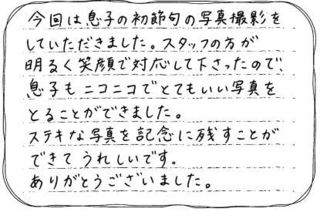 今回は息子の初節句の写真撮影を
していただきました。スタッフの方が
明るく笑顔で対応して下さったので、
息子もニコニコでとてもいい写真を
とることができました。
ステキな写真を記念に残すことが
できて うれしいです。
ありがとうございました。